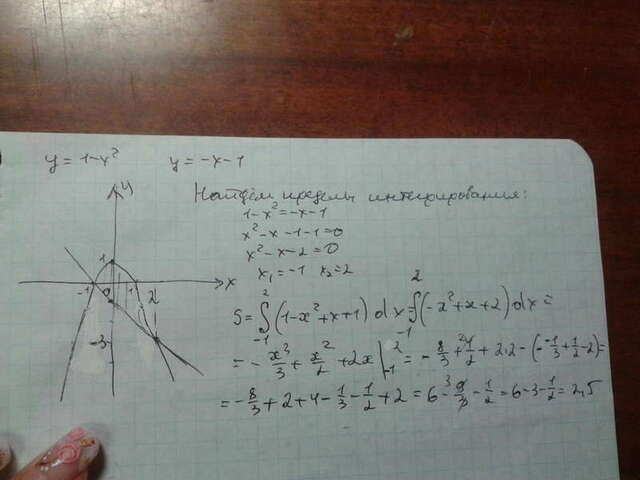 y = 1-x² y = -x-1
Найдём пределы интегрирования:
1-x² = -x-1
x²-x-1-1=0
x²-x-2=0
x₁=-1 x₂=2
y
1
-1 0 1 2 x
-3
S = ∫₋₁² (1-x²+x+1) dx = ∫₋₁² (-x²+x+2) dx =
= -x³/3 + x²/2 + 2x |₋₁² = -8/3 + 4/2 + 2·2 - (-(-1)/3 + 1/2 - 2) =
= -8/3 + 2 + 4 - 1/3 - 1/2 + 2 = 6 - 9/3 - 1/2 = 6-3-1/2 = 2,5